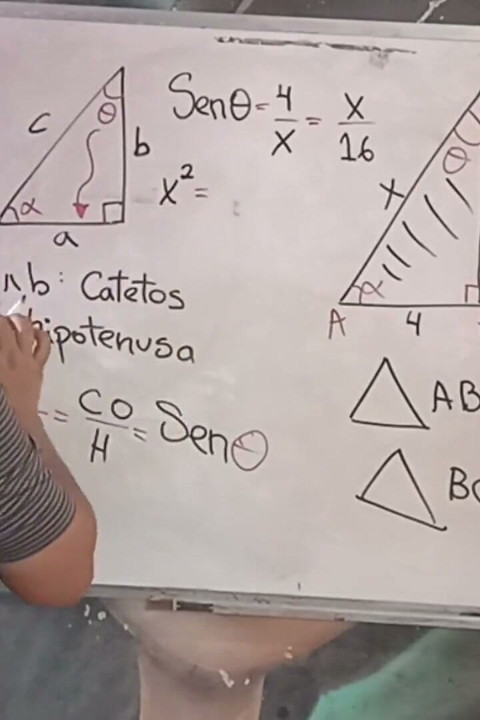 c
θ
b
α
a
Senθ = 4/x = x/16
x² =
b: Catetos
hipotenusa
= CO/H = Senθ
θ
x
α
A
4
△ AB
△ BC